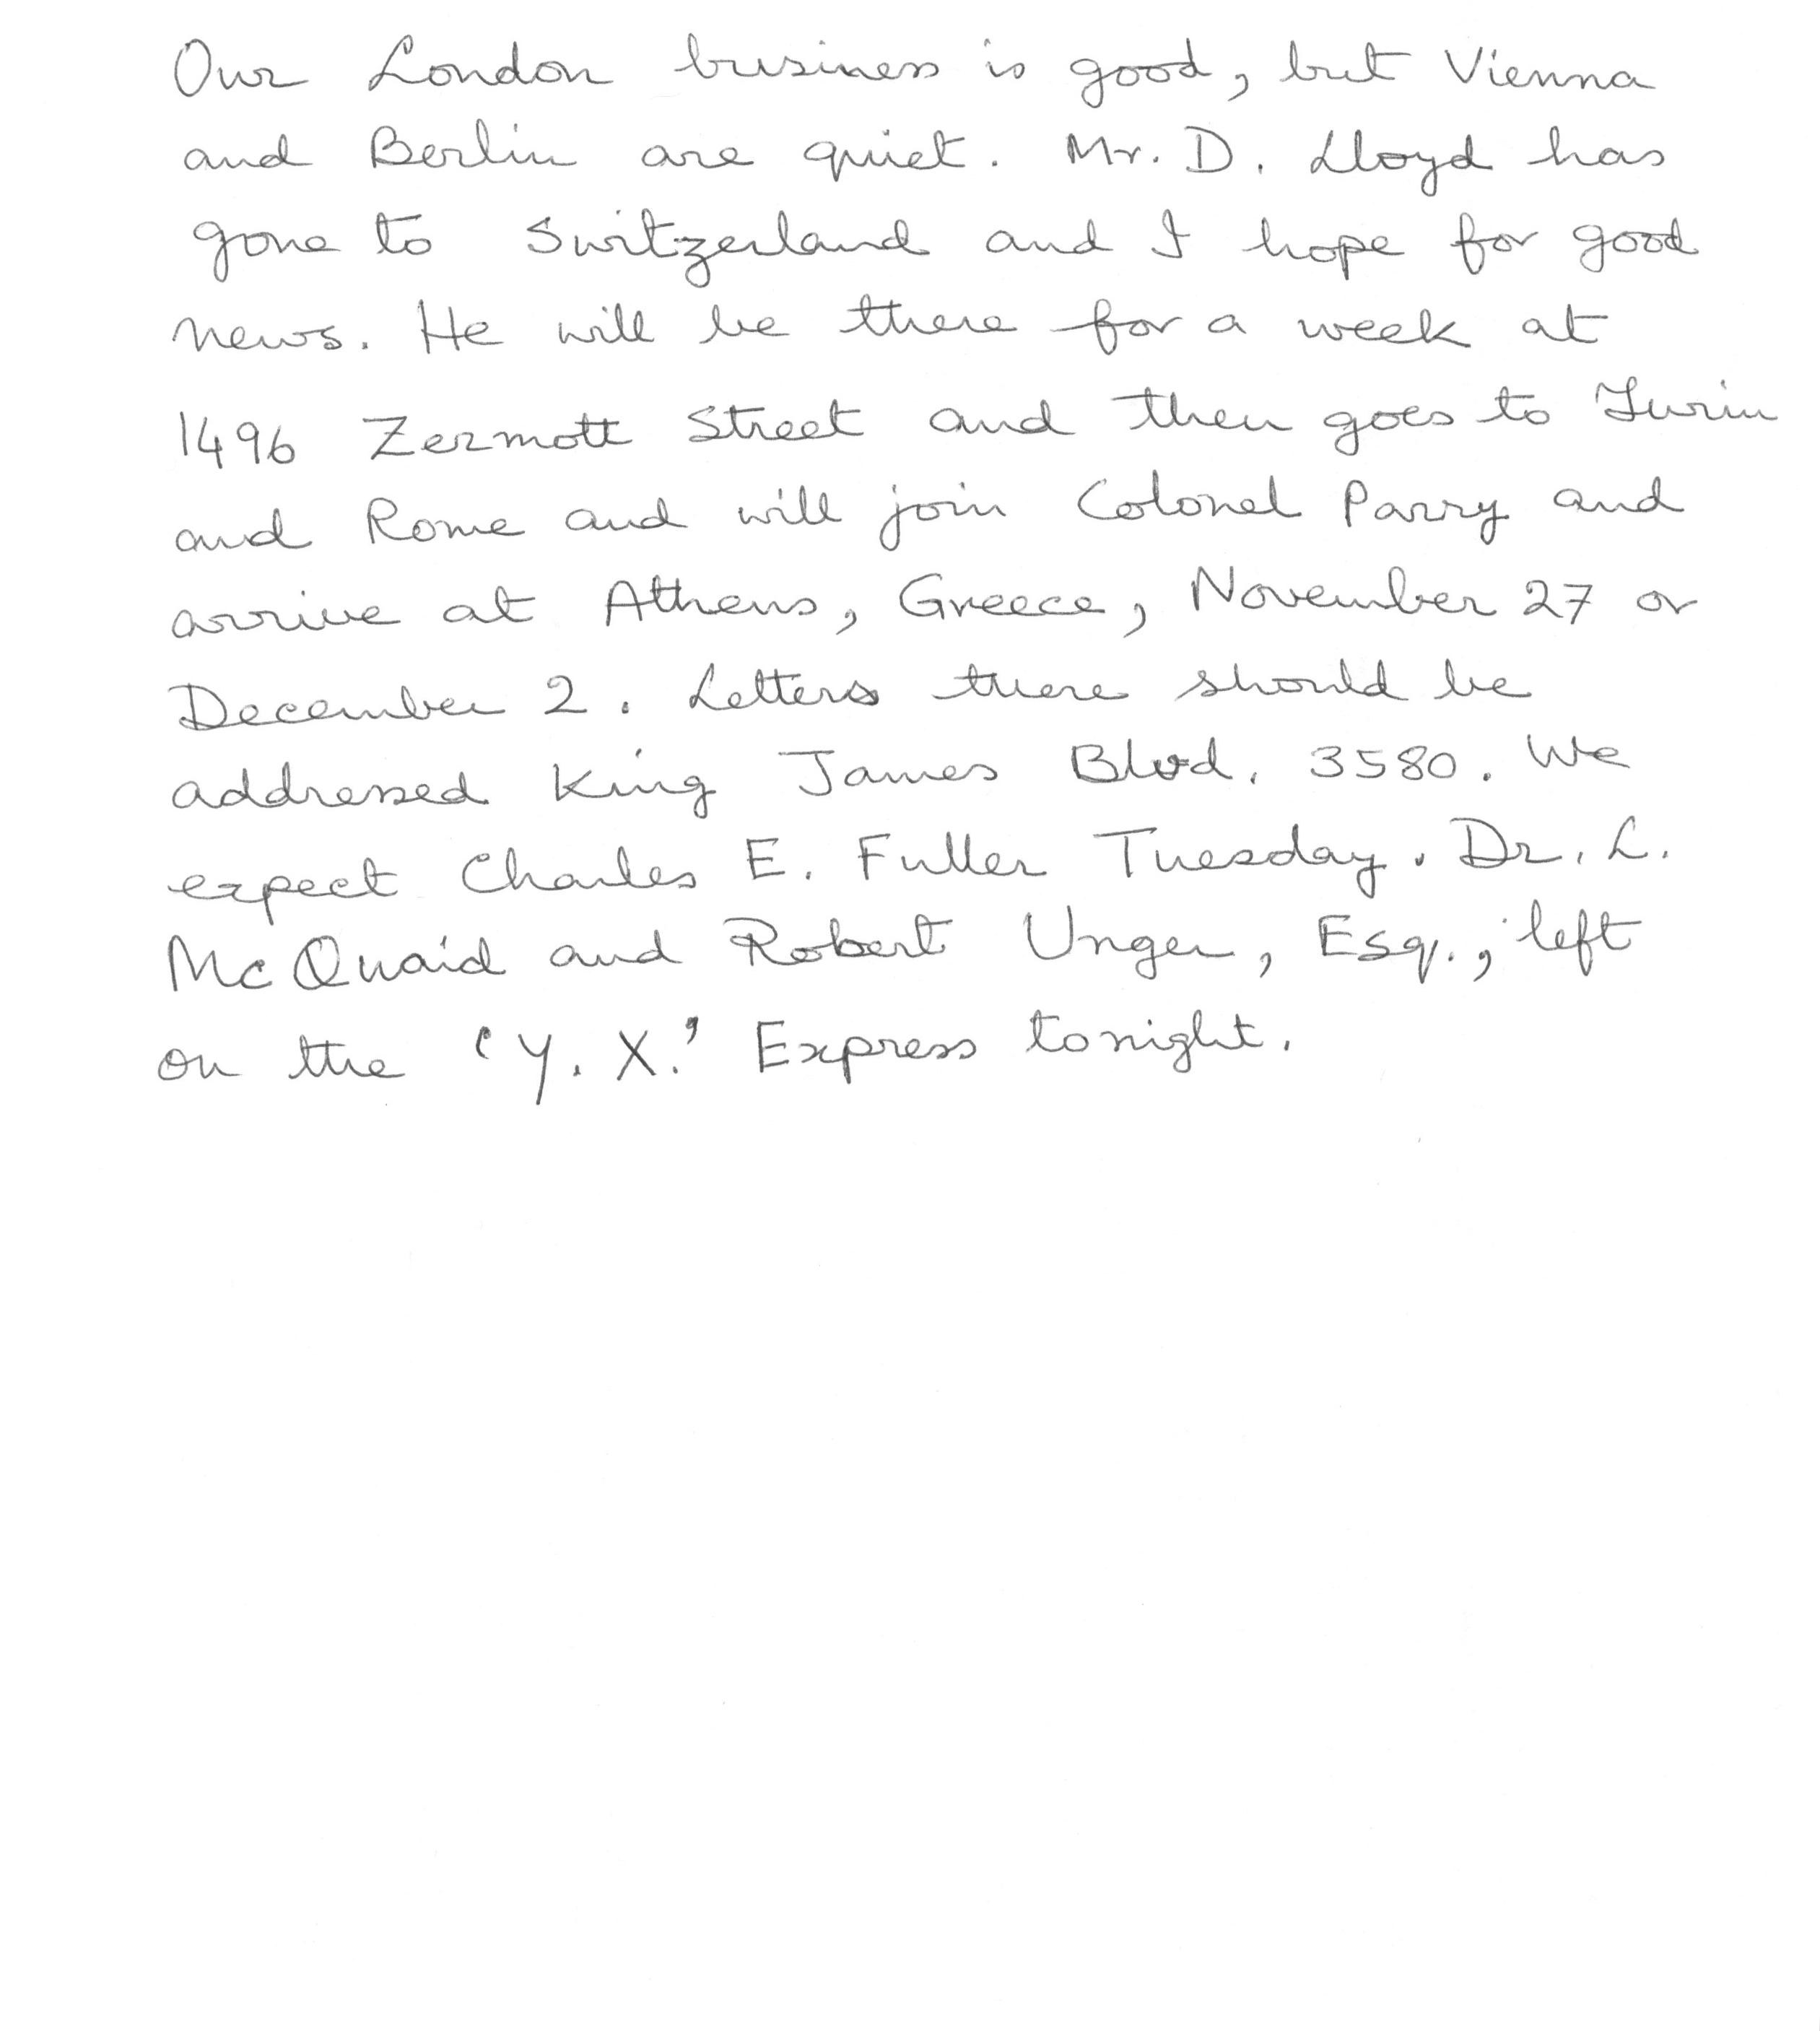 Our London business is good, but Vienna
and Berlin are quiet. Mr. D. Lloyd has
gone to Switzerland and I hope for good
news. He will be there for a week at
1496 Zermott Street and then goes to Turin
and Rome and will join Colonel Parry and
arrive at Athens, Greece, November 27 or
December 2. Letters there should be
addressed King James Blvd. 3580. We
expect Charles E. Fuller Tuesday. Dr. L.
McQuaid and Robert Unger, Esq., left
on the 'Y. X.' Express tonight.